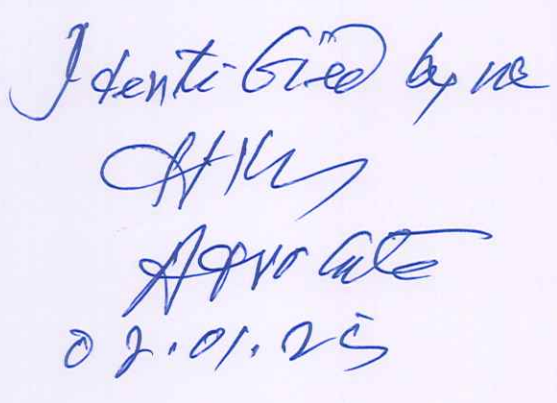 Identified by me
Advocate
02.01.25